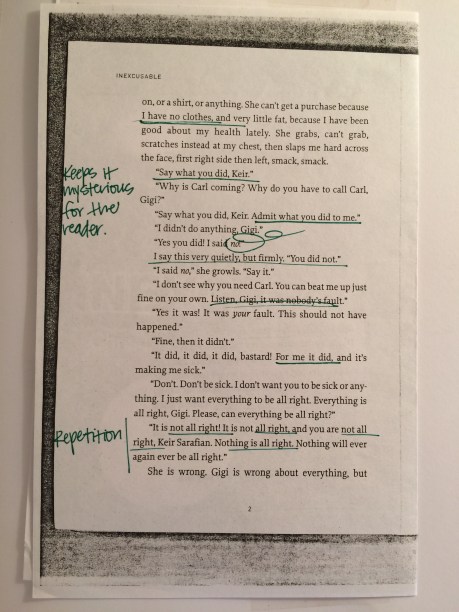 INEXCUSABLE
on, or a shirt, or anything. She can't get a purchase because
I have no clothes, and very little fat, because I have been
good about my health lately. She grabs, can't grab,
scratches instead at my chest, then slaps me hard across
the face, first right side then left, smack, smack.
"Say what you did, Keir."
"Why is Carl coming? Why do you have to call Carl,
Gigi?"
"Say what you did, Keir. Admit what you did to me."
"I didn't do anything, Gigi."
"Yes you did! I said no!"
I say this very quietly, but firmly. "You did not."
"I said no," she growls. "Say it."
"I don't see why you need Carl. You can beat me up just
fine on your own. Listen, Gigi, it was nobody's fault."
"Yes it was! It was your fault. This should not have
happened."
"Fine, then it didn't."
"It did, it did, it did, bastard! For me it did, and it's
making me sick."
"Don't. Don't be sick. I don't want you to be sick or any-
thing. I just want everything to be all right. Everything is
all right, Gigi. Please, can everything be all right?"
"It is not all right! It is not all right, and you are not all
right, Keir Sarafian. Nothing is all right. Nothing will ever
again ever be all right."
She is wrong. Gigi is wrong about everything, but
2
Keeps it
mysterious
for the
reader.
Repetition